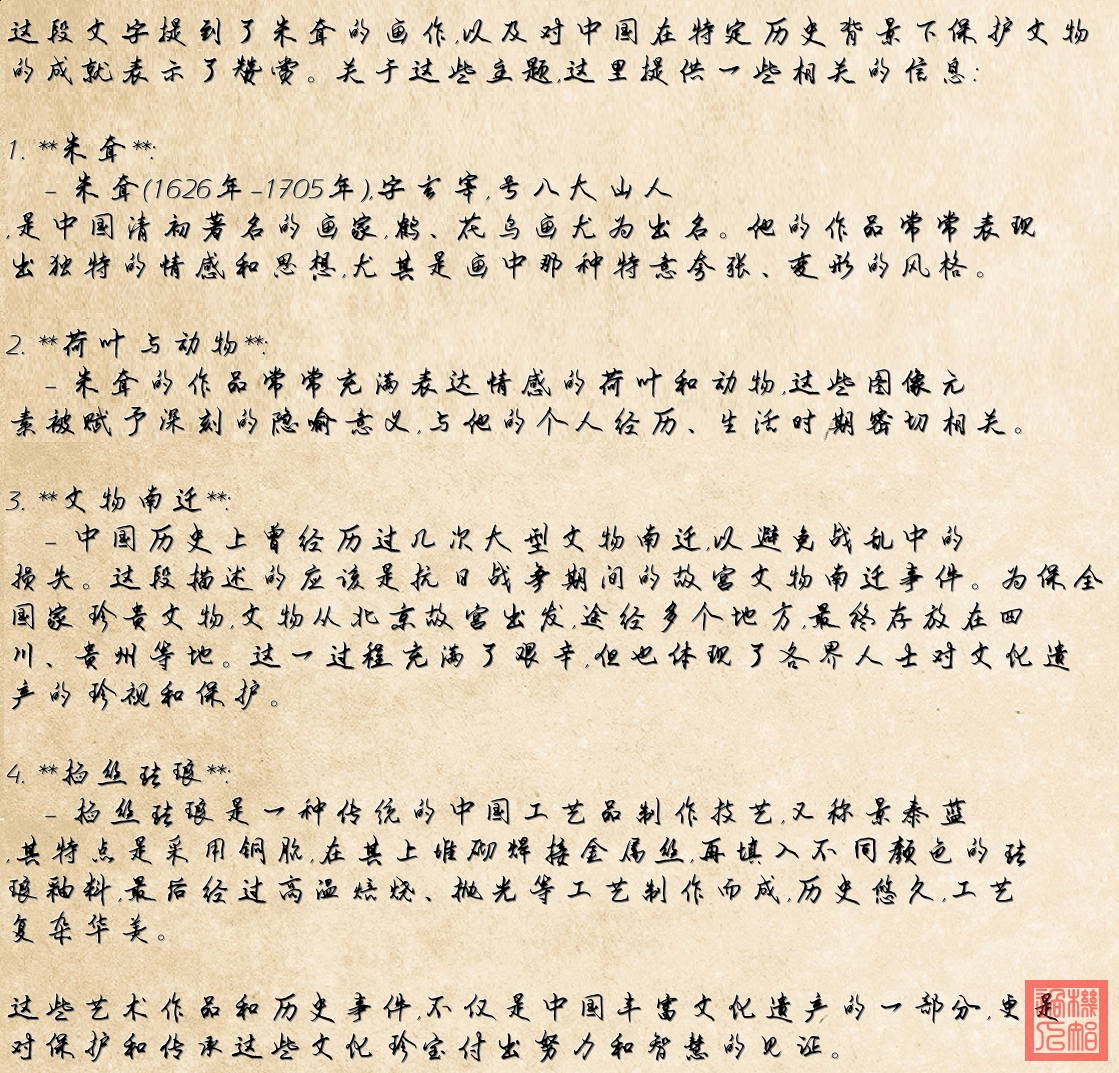 这段文字提到了朱耷的画作,以及对中国在特定历史背景下保护文物
的成就表示了赞赏。关于这些主题,这里提供一些相关的信息:
1. **朱耷**:
- 朱耷(1626年-1705年),字玄宰,号八大山人
,是中国清初著名的画家,鹤、花鸟画尤为出名。他的作品常常表现
出独特的情感和思想,尤其是画中那种特意夸张、变形的风格。
2. **荷叶与动物**:
- 朱耷的作品常常充满表达情感的荷叶和动物,这些图像元
素被赋予深刻的隐喻意义,与他的个人经历、生活时期密切相关。
3. **文物南迁**:
- 中国历史上曾经历过几次大型文物南迁,以避免战乱中的
损失。这段描述的应该是抗日战争期间的故宫文物南迁事件。为保全
国家珍贵文物,文物从北京故宫出发,途经多个地方,最终存放在四
川、贵州等地。这一过程充满了艰辛,但也体现了各界人士对文化遗
产的珍视和保护。
4. **掐丝珐琅**:
- 掐丝珐琅是一种传统的中国工艺品制作技艺,又称景泰蓝
,其特点是采用铜胎,在其上堆砌焊接金属丝,再填入不同颜色的珐
琅釉料,最后经过高温焙烧、抛光等工艺制作而成,历史悠久,工艺
复杂华美。
这些艺术作品和历史事件,不仅是中国丰富文化遗产的一部分,更是
对保护和传承这些文化珍宝付出努力和智慧的见证。